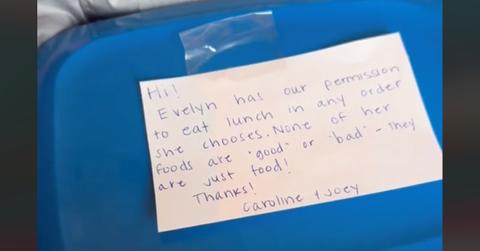 Hi!
Evelyn has our permission
to eat lunch in any order
she chooses. None of her
foods are "good" or "bad" - They
are just food!
Thanks!
Caroline + Joey